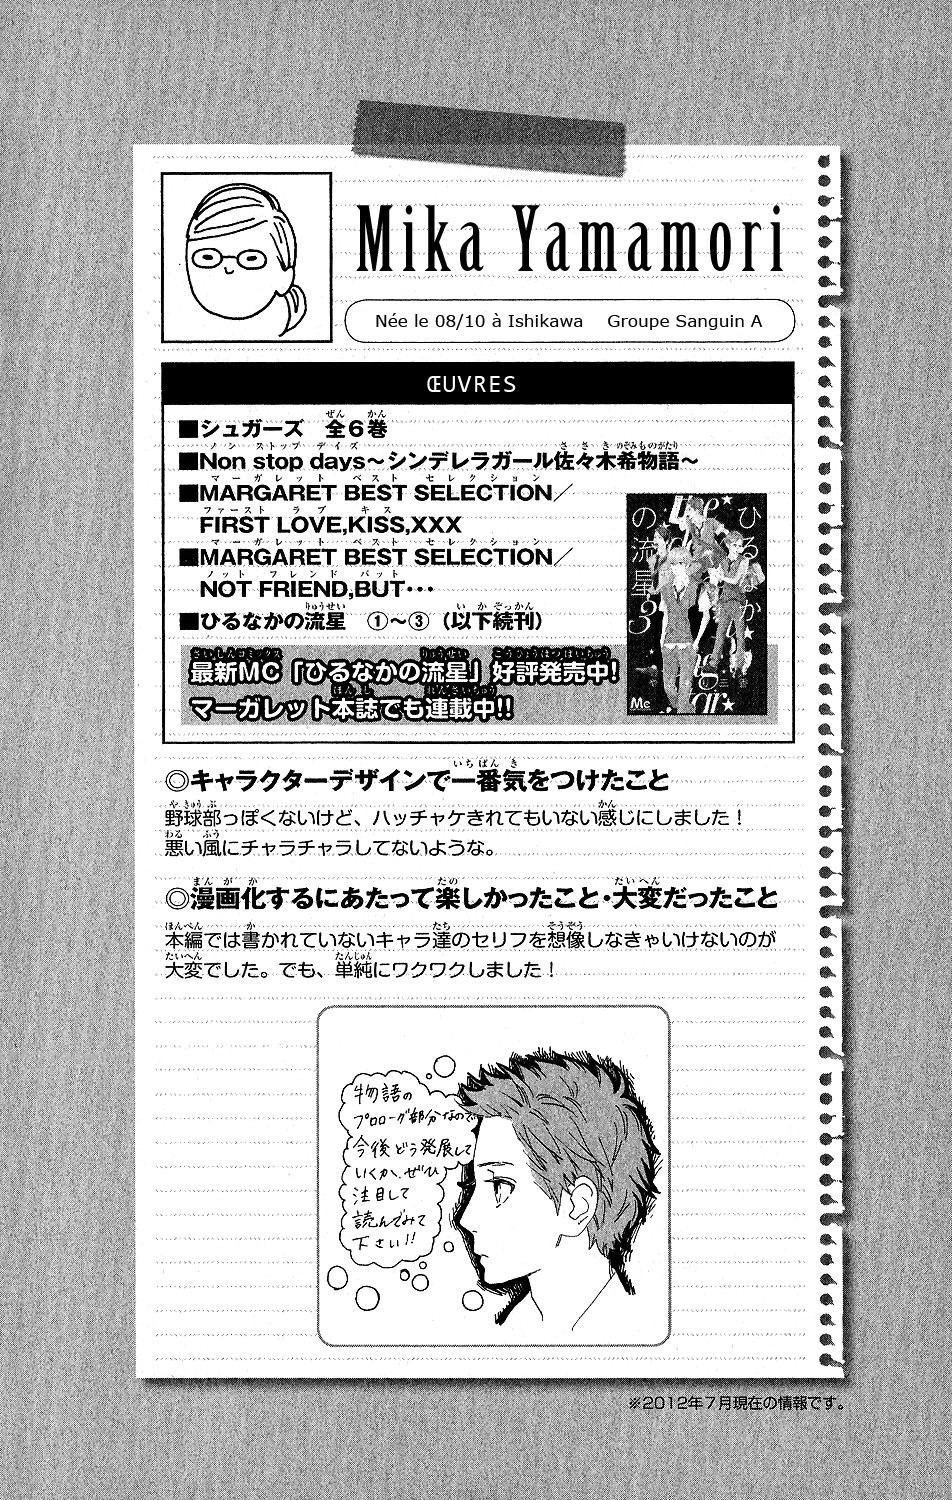 Mika Yamamori
Née le 08/10 à Ishikawa Groupe Sanguin A
ŒUVRES
■シュガーズ 全6巻
■Non stop days～シンデレラガール佐々木希物語～
■MARGARET BEST SELECTION／
FIRST LOVE,KISS,XXX
■MARGARET BEST SELECTION／
NOT FRIEND,BUT･･･
■ひるなかの流星 ①～③（以下続刊）
最新MC「ひるなかの流星」好評発売中!
マーガレット本誌でも連載中!!
ひるなか
の流星
3
Mc
◎キャラクターデザインで一番気をつけたこと
野球部っぽくないけど、ハッチャケきれてもいない感じにしました！
悪い風にチャラチャラしてないような。
◎漫画化するにあたって楽しかったこと・大変だったこと
本編では書かれていないキャラ達のセリフを想像しなきゃいけないのが
大変でした。でも、単純にワクワクしました！
物語の
プロローグ部分なので
今後どう発展して
いくか、ぜひ
注目して
読んでみて
下さい!!
※2012年7月現在の情報です。